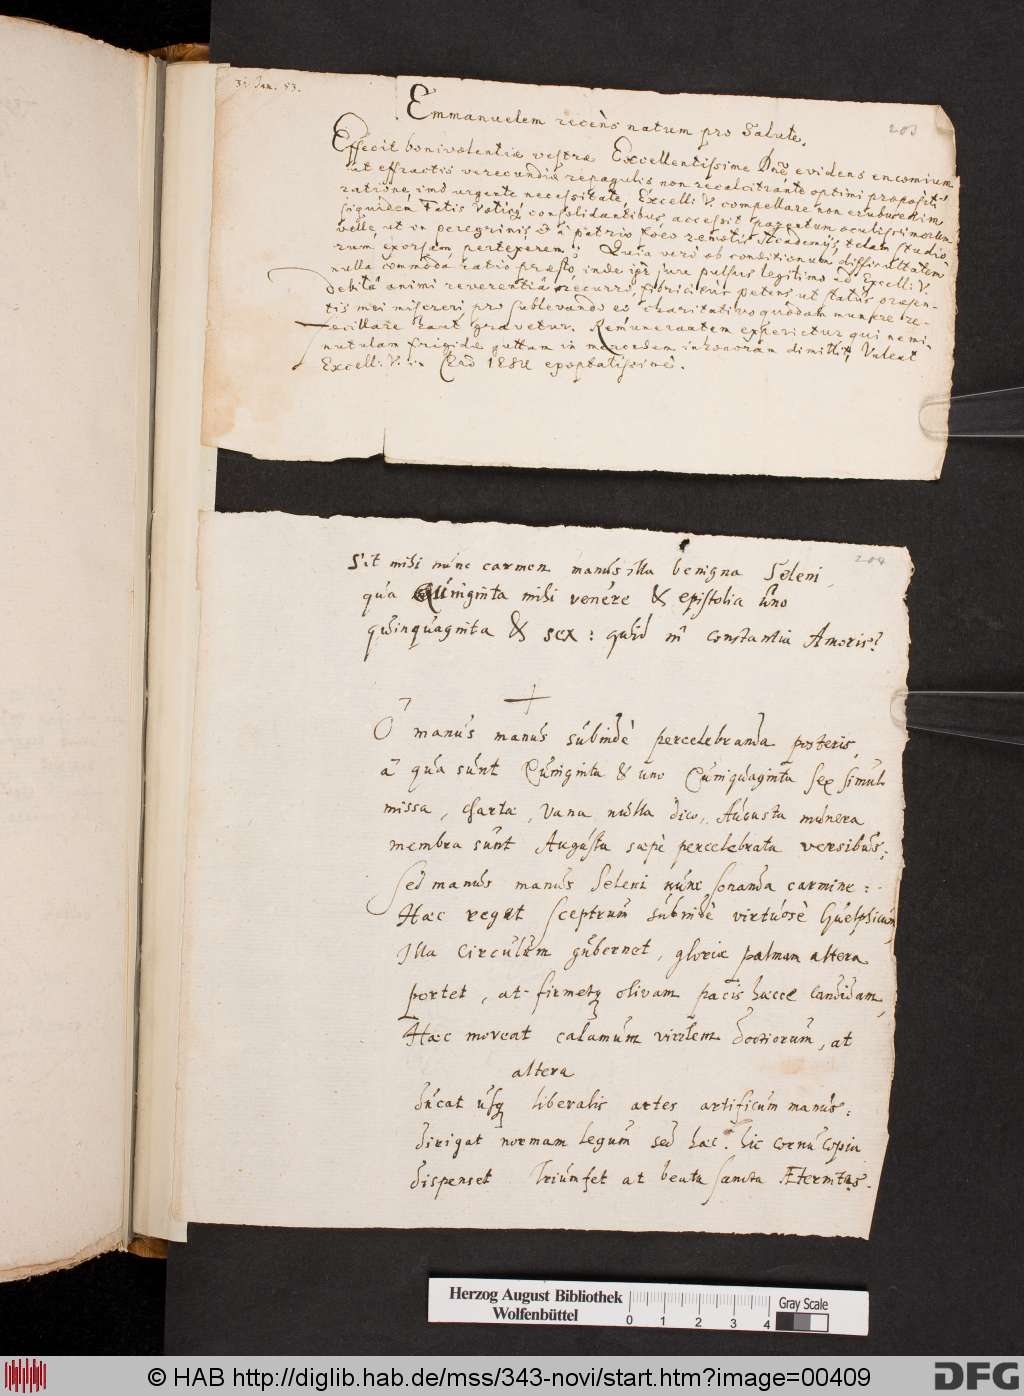 31 Jan. 53.
203
Emmanuelem recèns natum pro Salute.
Effecit bonivolentiæ vestræ Excellentissime Dne, evidens encomium
ut effractis verecundiæ repagulis non recalcitrante optimi propositi
ratione, imò urgente necessitate, Excell: V. compellare non erubuerim
siquidem Fatis votisq consolidantibus accessit parentum oculissimorum
velle, ut in peregrinis & à patrio foco remotis Academijs, telam studio-
rum exorsam pertexerem: Quia verò ob conditionum difficultatem
nulla commoda ratio præsto, inde ipso jure pulsus legitimo ad Excell: V.
debitâ animi reverentiâ recurro, petens ut status præsen-
tis mei misereri pro sublevando eo charitativo quodam munere re-
focillare haut gravetur. Remunerantem experietur qui nemi-
nutulam frigidæ guttam in mercedem inhonoram dimittit, Valeat
Excell: V. exoptatissimè.
204
Sit mihi nunc carmen manus illa benigna Seleni,
qua Quinginta mihi venere & epistolia uno
quinquaginta & sex: quid in constantia Amoris?
O manus manus subindè percelebranda posteris,
à qua sunt Quinginta & uno Quinquaginta sex simul
missa, chartæ, vana nulla dico, Augusta munera
membra sunt Augusta sæpè percelebrata versibus:
Sed manus manus Seleni nunc sonanda carmine:
Hæc regat sceptrum subindè virtuosè Guelphicum,
Illa circulum gubernet, gloriæ palmam altera
portet, at firmetq olivam pacis hæcce candidam,
Hæc moveat calamum virilem doctiorum, at
altera
ducat usq liberalis artes artificum manus:
dirigat normam legum sed hæc: hic cornu copia
dispenset Triumfet at beata sancta Æternitas.
Herzog August Bibliothek
Wolfenbüttel
0 1 2 3 4
Gray Scale
© HAB http://diglib.hab.de/mss/343-novi/start.htm?image=00409
DFG